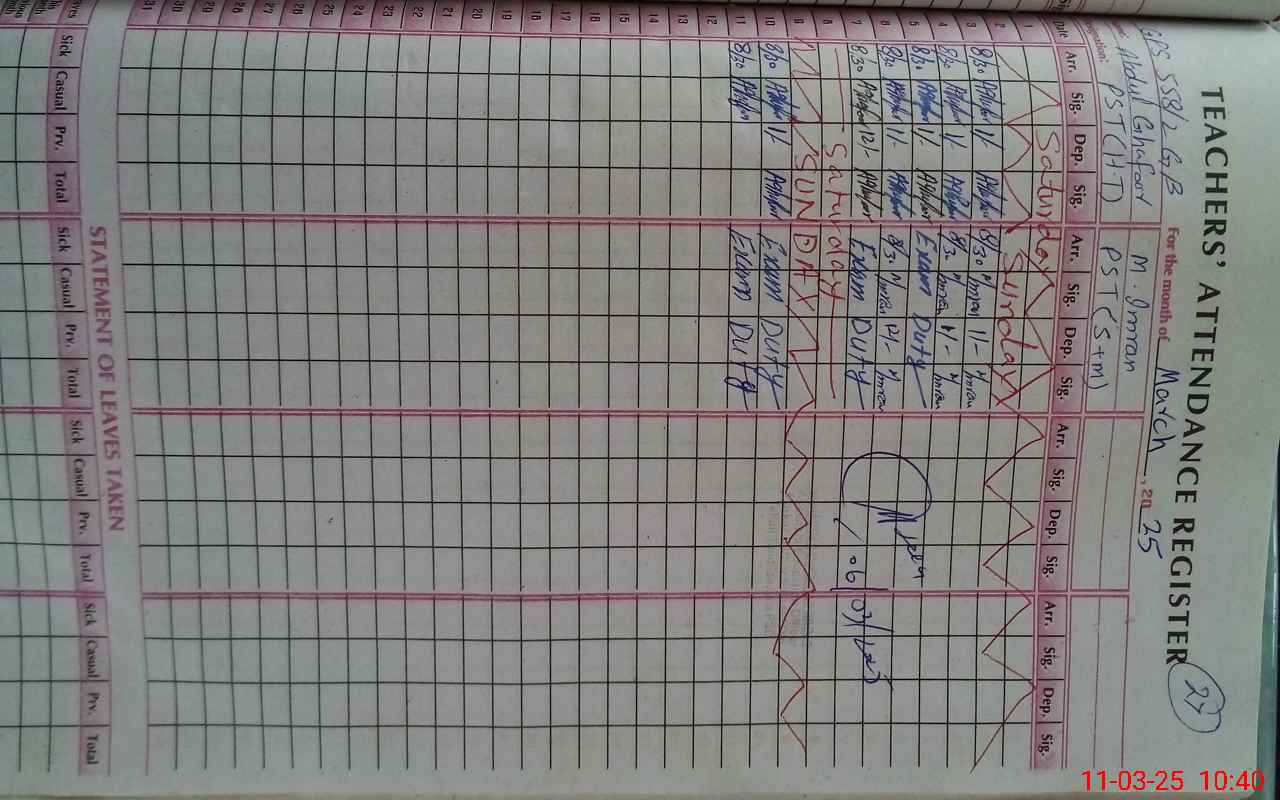 TEACHERS' ATTENDANCE REGISTER 27
GPS 558/2GB For the month of March, 2025
Abdul Ghafoor M. Imran
PST(H.T) PST(S+M)
Arr. Sig. Dep. Sig. Arr. Sig. Dep. Sig. Arr. Sig. Dep. Sig. Arr. Sig. Dep. Sig.
1 Saturday
2 Sunday
3 8/30 1/- 8/30 Imran 1/- Imran
4 8/30 1/- 8/3. Imran 1/- Imran
5 8/30 1/- Exam Duty
6 8/30 1/- 8/3. Imran 12/- Imran
7 8/30 12/- Exam Duty
8 Saturday
9 SUNDAY
10 8/30 1/- Exam Duty
11 8/30 Exam Duty
12
13
14
15
16
17
18
19
20
21
22
23
24
25
26
27
28
29
30
31
STATEMENT OF LEAVES TAKEN
Sick Casual Prv. Total Sick Casual Prv. Total Sick Casual Prv. Total Sick Casual Prv. Total
11-03-25 10:40